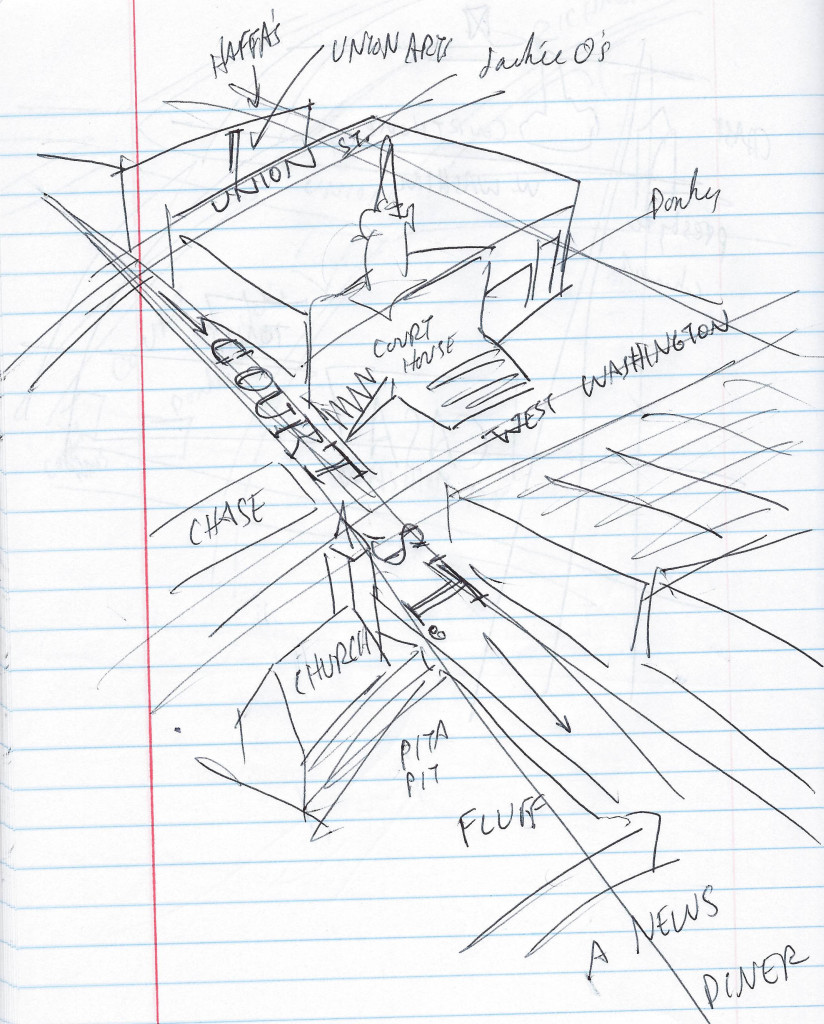 HAFFA'S
UNION ARTS
Jackie O's
UNION ST.
Donky
COURT
HOUSE
WEST WASHINGTON
COURT ST.
CHASE
CHURCH
PITA
PIT
FLUFF
A NEWS
DINER